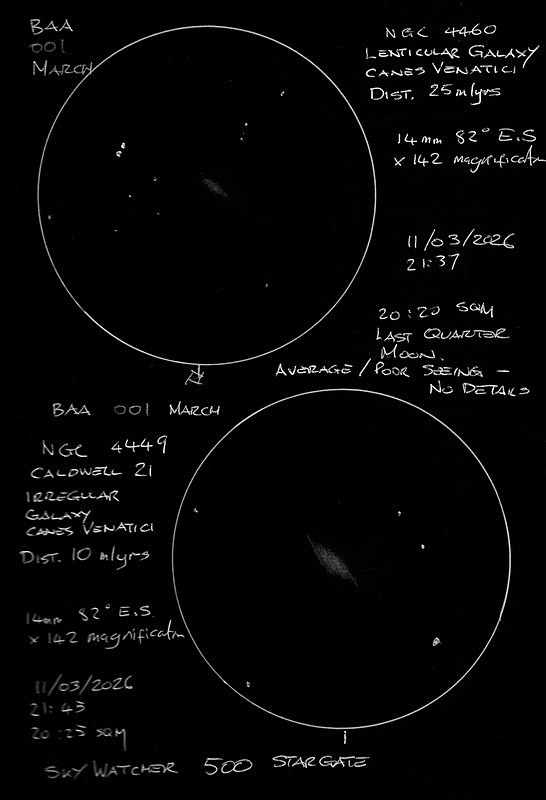 BAA
001
MARCH
NGC 4460
LENTICULAR GALAXY
CANES VENATICI
DIST. 25 mlyrs
14mm 82° E.S
x 142 magnificatn
11/03/2026
21:37
20:20 SQM
LAST QUARTER
MOON.
AVERAGE / POOR SEEING –
NO DETAILS
BAA 001 MARCH
NGC 4449
CALDWELL 21
IRREGULAR
GALAXY
CANES VENATICI
DIST. 10 mlyrs
14mm 82° E.S.
x 142 magnificatn
11/03/2026
21:43
20:25 SQM
SKY WATCHER 500 STARGATE